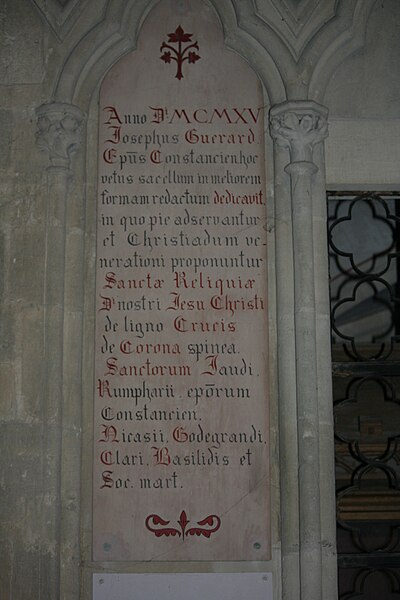 Anno Dⁱ MCMXV
Josephus Guerard.
Epūs Constancien hoc
vetus sacellum in meliorem
formam redactum dedicavit,
in quo pie adservantur
et Christiadum ve-
nerationi proponuntur
Sanctæ Reliquiæ
Dⁱ nostri Jesu Christi
de ligno Crucis
de Corona spinea.
Sanctorum Laudi,
Rumpharii, epōrum
Constancien.
Nicasii, Godegrandi,
Clari, Basilidis et
Soc. mart.